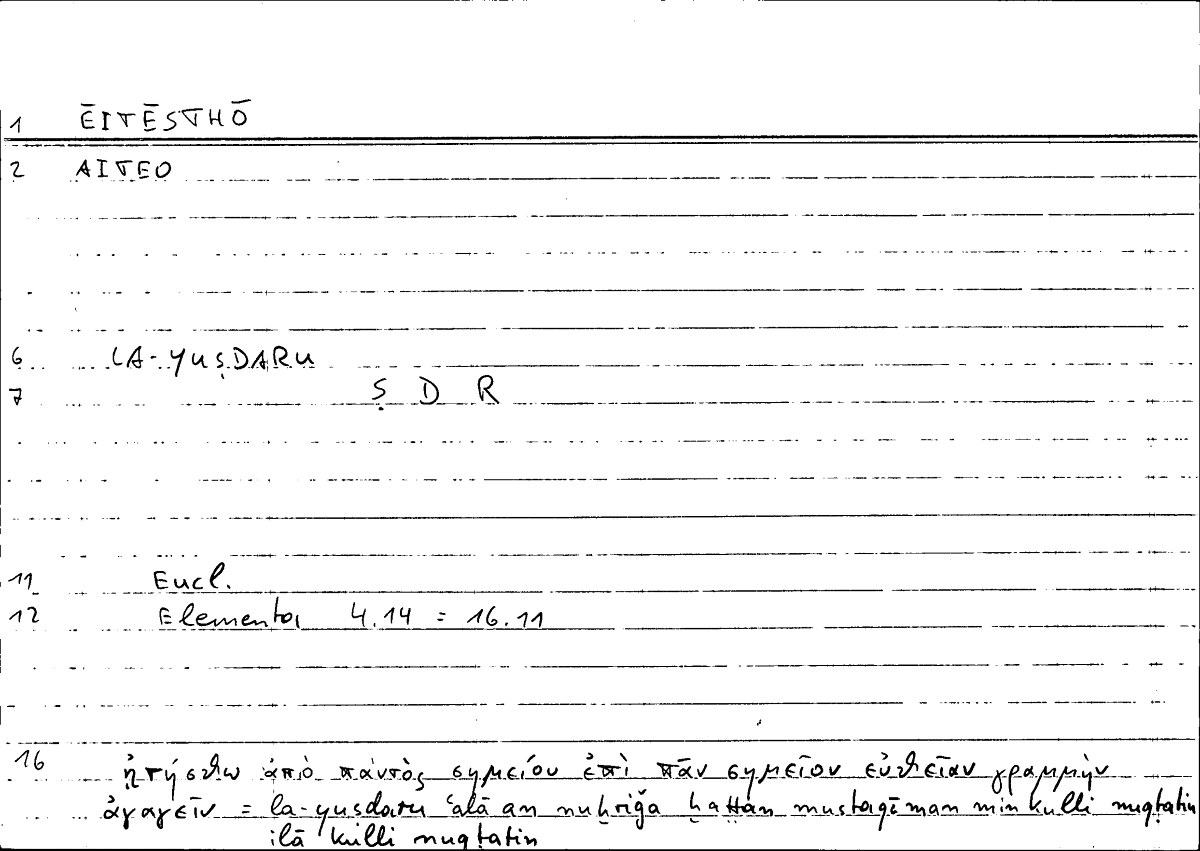 1 ĒITĒSTHŌ
2 AITEO
6 LA-YUṢDARU
7 Ṣ D R
11 Eucl.
12 Elementa 4.14 = 16.11
16 ᾐτήσθω ἀπὸ παντὸς σημείου ἐπὶ πᾶν σημεῖον εὐθεῖαν γραμμὴν
ἀγαγεῖν = la-yusdaru ʿalā an nuḫriǧa ḫaṭṭan mustaqīman min kulli nuqṭatin
ilā kulli nuqṭatin